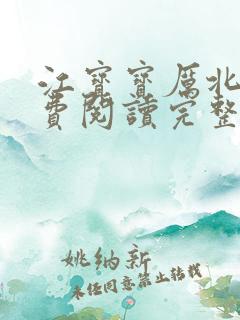 江寶寶厲北
費閱讀完整
姚納新
未经同意禁止转载